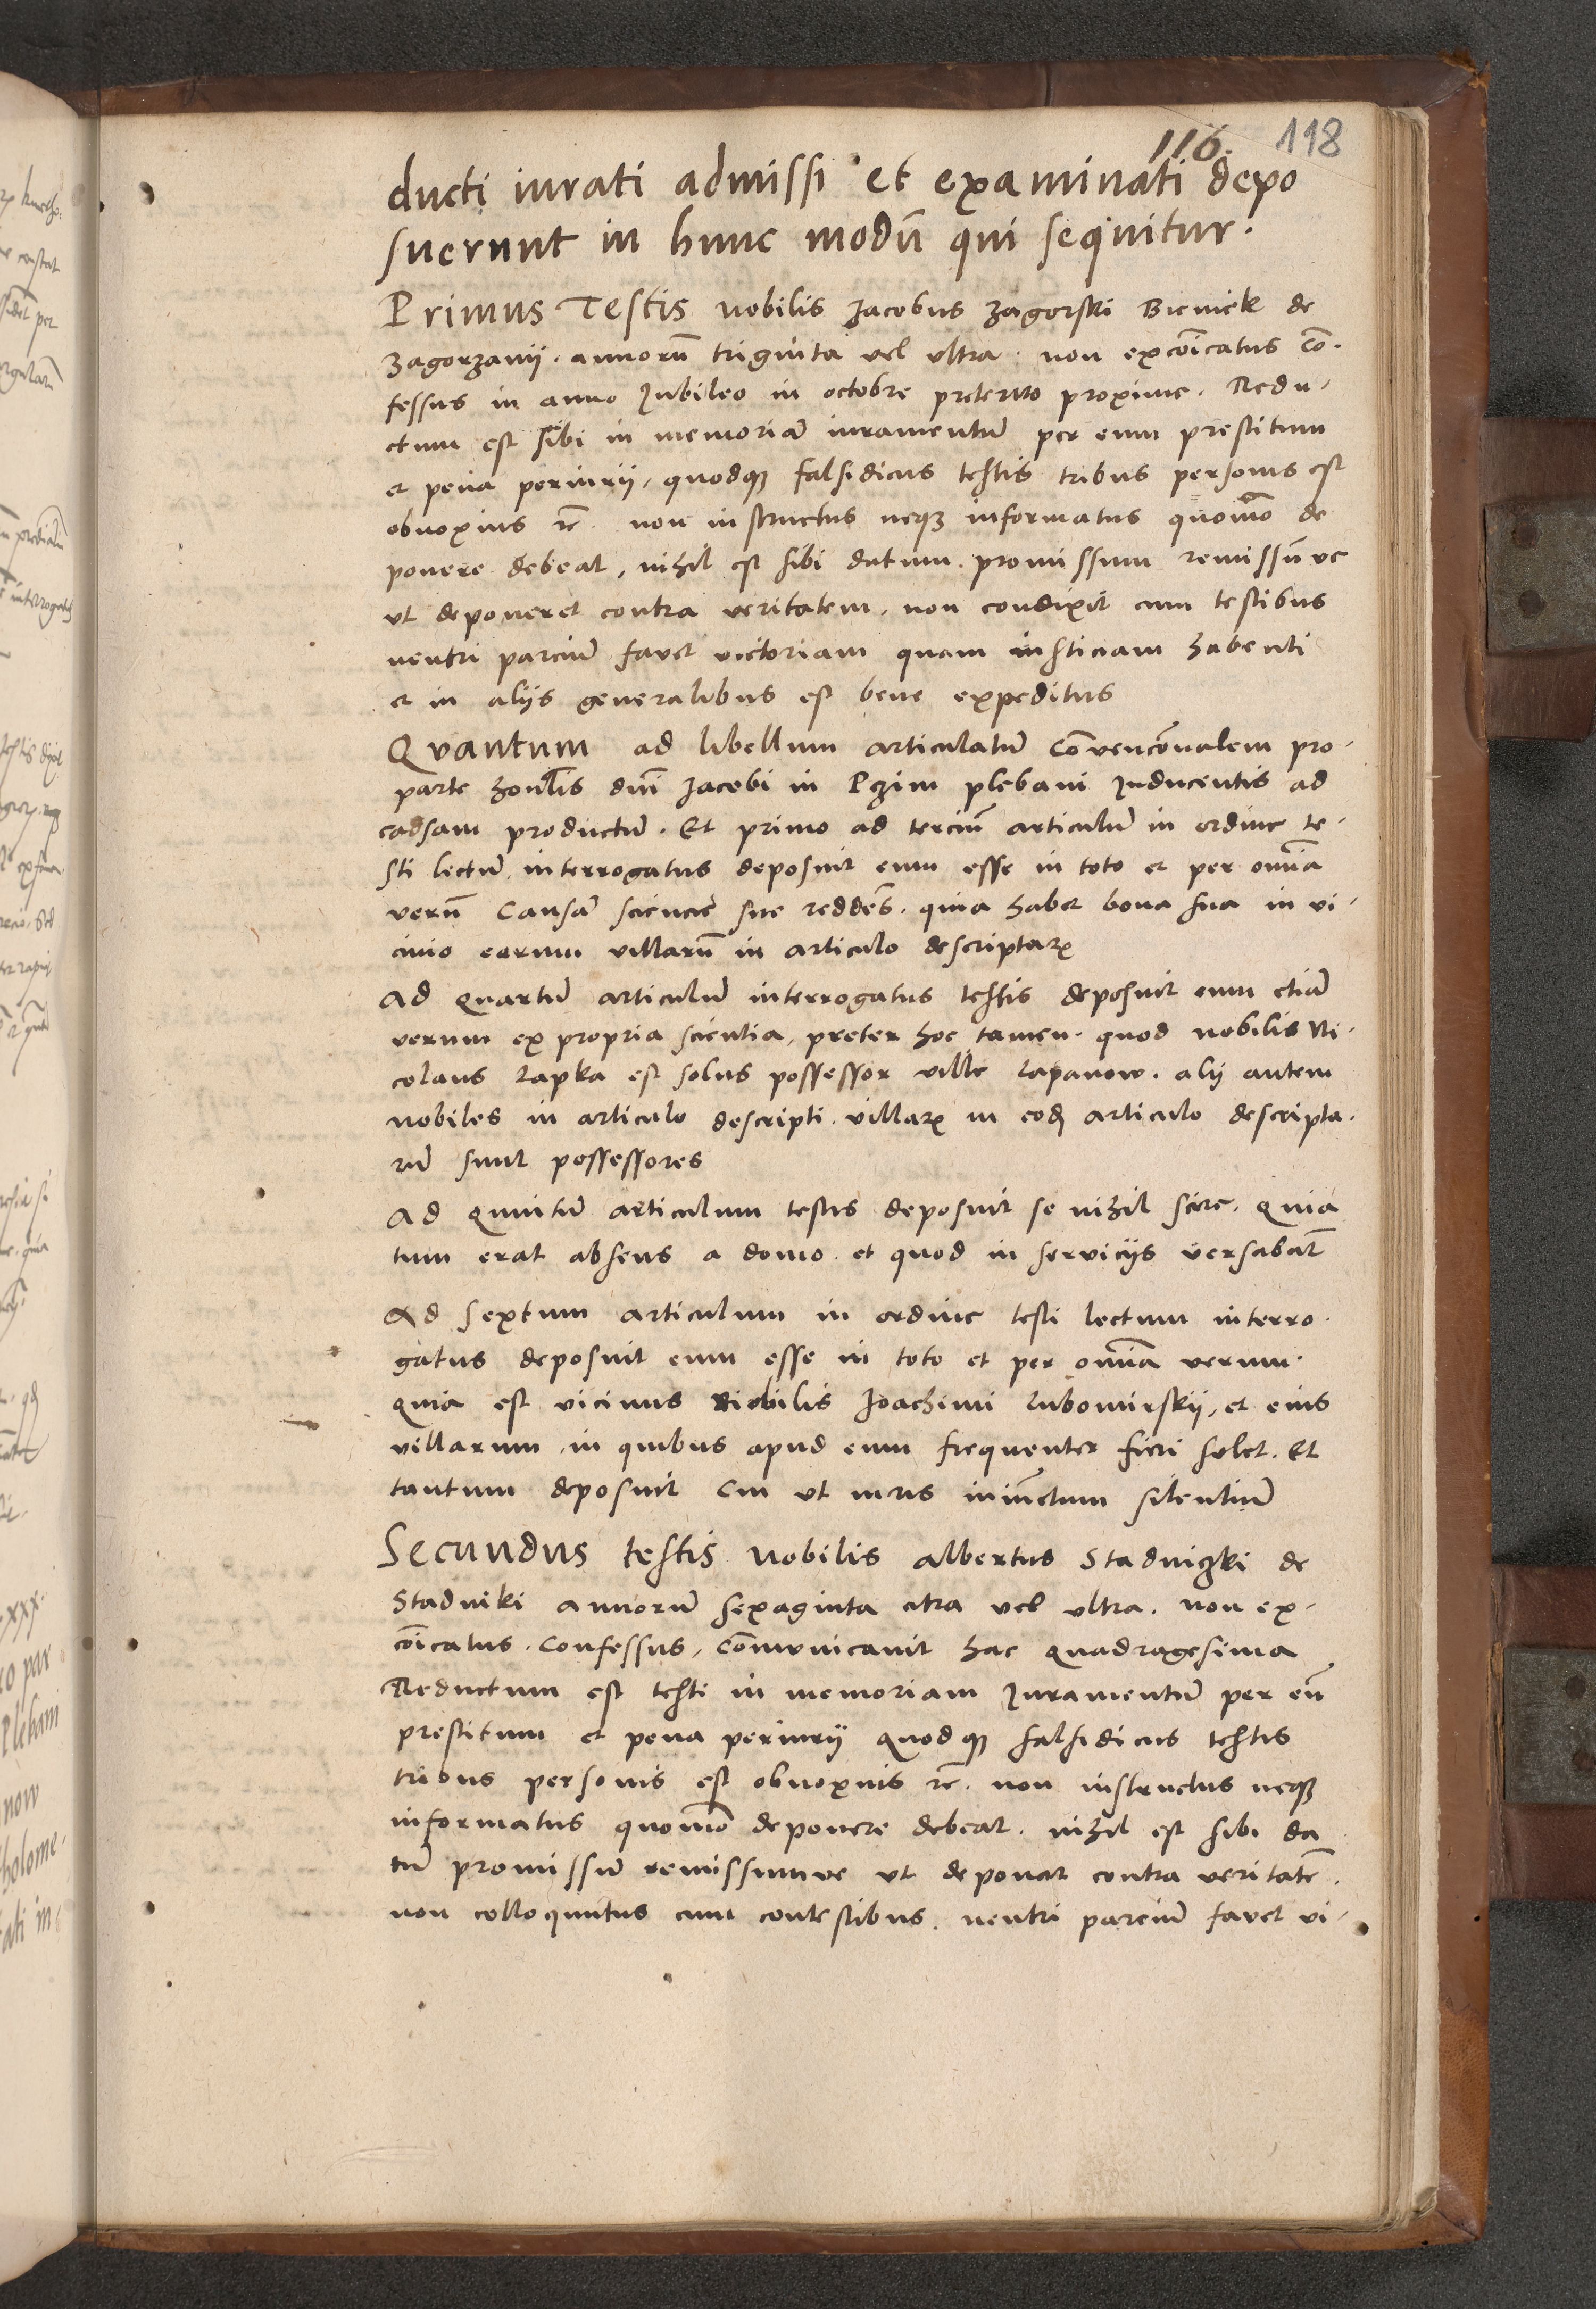 116. 118
ducti iurati admissi et examinati depo
suerunt in hunc modū qui sequitur.
Primus Testis nobilis Jacobus Zagorski Bieniek de
Zagorzanij. annorū triginta vel ultra. non excōicatus cō-
fessus in anno Jubileo in octobre preterito proxime. Redu-
ctum est sibi in memoriā iuramentū per eum prestitum
et pena periurij, quodq3 falsidicus testis tribus personis est
obnoxius etc̄. non instructus neq3 informatus quomō de
ponere debeat, nihil est sibi datum. promissum remissūve
ut deponeret contra veritatem. non condixit cum testibus
neutri parciū favet victoriam quam iusticiam habenti
et in aliis generalibus est bene expeditus
Quantum ad libellum articulatū Cōvencōnalem pro
parte honlis dni Jacobi in Pzim plebani Inducentis ad
causam productū. Et primo ad terciū articulū in ordine te-
sti lectū, interrogatus deposuit eum esse in toto et per omīa
verū Causā sciencie sue reddēs. quia habet bona sua in vi-
cinio earum villarū in articulo descriptaꝝ
Ad quartū articulū interrogatus testis deposuit eum etiā
verum ex propria scientia, preter hoc tamen. quod nobilis Ni-
colaus Lapka est solus possessor ville Lapanow. alij autem
nobiles in articulo descripti. villaꝝ in eod articulo descripta-
rū sunt possessores
Ad quintū articulum testis deposuit se nihil scire. quia
tum erat absens a domo. et quod in serviciis versabat̄
Ad sextum articulum in ordine testi lectum interro-
gatus deposuit eum esse in toto et per omīa verum.
quia est vicinus Nobilis Joachimi Lubomirskij, et eius
villarum, in quibus apud eum frequenter fieri solet. Et
tantum deposuit Cui ut iuris iniūctum silentiū
Secundus testis Nobilis Albertus Stadnizki de
Stadniki annorū sexaginta citra vel ultra. non ex-
cōicatus. Confessus, Cōmunicavit hac quadragesima
Reductum est testi in memoriam Juramentū per eū
prestitum et pena periurij quodq3 falsidicus testis
tribus personis est obnoxius etc̄. non instructus neq3
informatus quomō deponere debeat. nihil est sibi da
tū promissū remissumve ut deponat contra veritatē.
non colloquutus cum contestibus. neutri parciū favet vi-